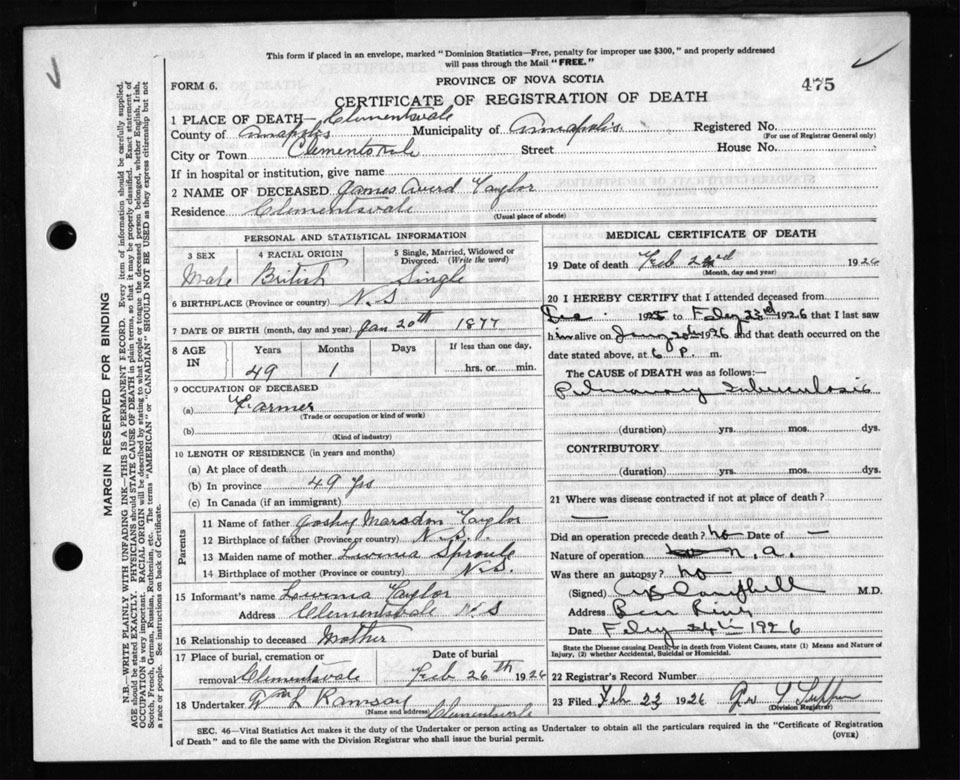 This form if placed in an envelope, marked "Dominion Statistics—Free, penalty for improper use $300," and properly addressed
will pass through the Mail "FREE."
FORM 6.
PROVINCE OF NOVA SCOTIA
475
CERTIFICATE OF REGISTRATION OF DEATH
1 PLACE OF DEATH— Clementsvale
County of Annapolis Municipality of Annapolis Registered No.
(For use of Registrar General only)
City or Town Clementsvale Street House No.
If in hospital or institution, give name
2 NAME OF DECEASED James Taylor
Residence Clementsvale
(Usual place of abode)
PERSONAL AND STATISTICAL INFORMATION
3 SEX 4 RACIAL ORIGIN 5 Single, Married, Widowed or Divorced. (Write the word)
Male British Single
6 BIRTHPLACE (Province or country) N.S
7 DATE OF BIRTH (month, day and year) Jan 20th 1877
8 AGE IN Years Months Days If less than one day,
49 1 hrs. or min.
9 OCCUPATION OF DECEASED
(a) Farmer
(Trade or occupation or kind of work)
(b)
(Kind of industry)
10 LENGTH OF RESIDENCE (in years and months)
(a) At place of death
(b) In province 49 yrs
(c) In Canada (if an immigrant)
Parents
11 Name of father Marsdon Taylor
12 Birthplace of father (Province or country) N.S.
13 Maiden name of mother Sproule
14 Birthplace of mother (Province or country) N.S.
15 Informant's name Taylor
Address Clementsvale N.S
16 Relationship to deceased Mother
17 Place of burial, cremation or removal Clementsvale
Date of burial
Feb 26th 1926
18 Undertaker Wm L Ramsay
(Name and address) Clementsvale
MEDICAL CERTIFICATE OF DEATH
19 Date of death Feb 1926
(Month, day and year)
20 I HEREBY CERTIFY that I attended deceased from
1925 to Feby 23rd 1926 that I last saw
him alive on 1926 and that death occurred on the
date stated above, at 6 P. m.
The CAUSE of DEATH was as follows:—
Pulmonary Tuberculosis
(duration) yrs. mos. dys.
CONTRIBUTORY
(duration) yrs. mos. dys.
21 Where was disease contracted if not at place of death?
—
Did an operation precede death? no Date of —
Nature of operation n.a.
Was there an autopsy? no
(Signed) Campbell M.D.
Address Bear River
Date Feby 24th 1926
State the Disease causing Death, or in death from Violent Causes, state (1) Means and Nature of
Injury, (2) whether Accidental, Suicidal or Homicidal.
22 Registrar's Record Number
23 Filed Feb 23 1926
(Division Registrar)
SEC. 46—Vital Statistics Act makes it the duty of the Undertaker or person acting as Undertaker to obtain all the particulars required in the "Certificate of Registration
of Death" and to file the same with the Division Registrar who shall issue the burial permit.
(OVER)
MARGIN RESERVED FOR BINDING
N.B.—WRITE PLAINLY WITH UNFADING INK—THIS IS A PERMANENT RECORD. Every item of information should be carefully supplied.
AGE should be stated EXACTLY. PHYSICIANS should STATE CAUSE OF DEATH in plain terms, so that it may be properly classified. Exact statement of
OCCUPATION is very important. RACIAL ORIGIN will be described by stating to what people or tongue the deceased person belonged, whether English, Irish,
Scotch, French, German, Russian, Ruthenian, etc. The terms "AMERICAN" or "CANADIAN" SHOULD NOT BE USED as they express citizenship but not
a race or people. See instructions on back of Certificate.